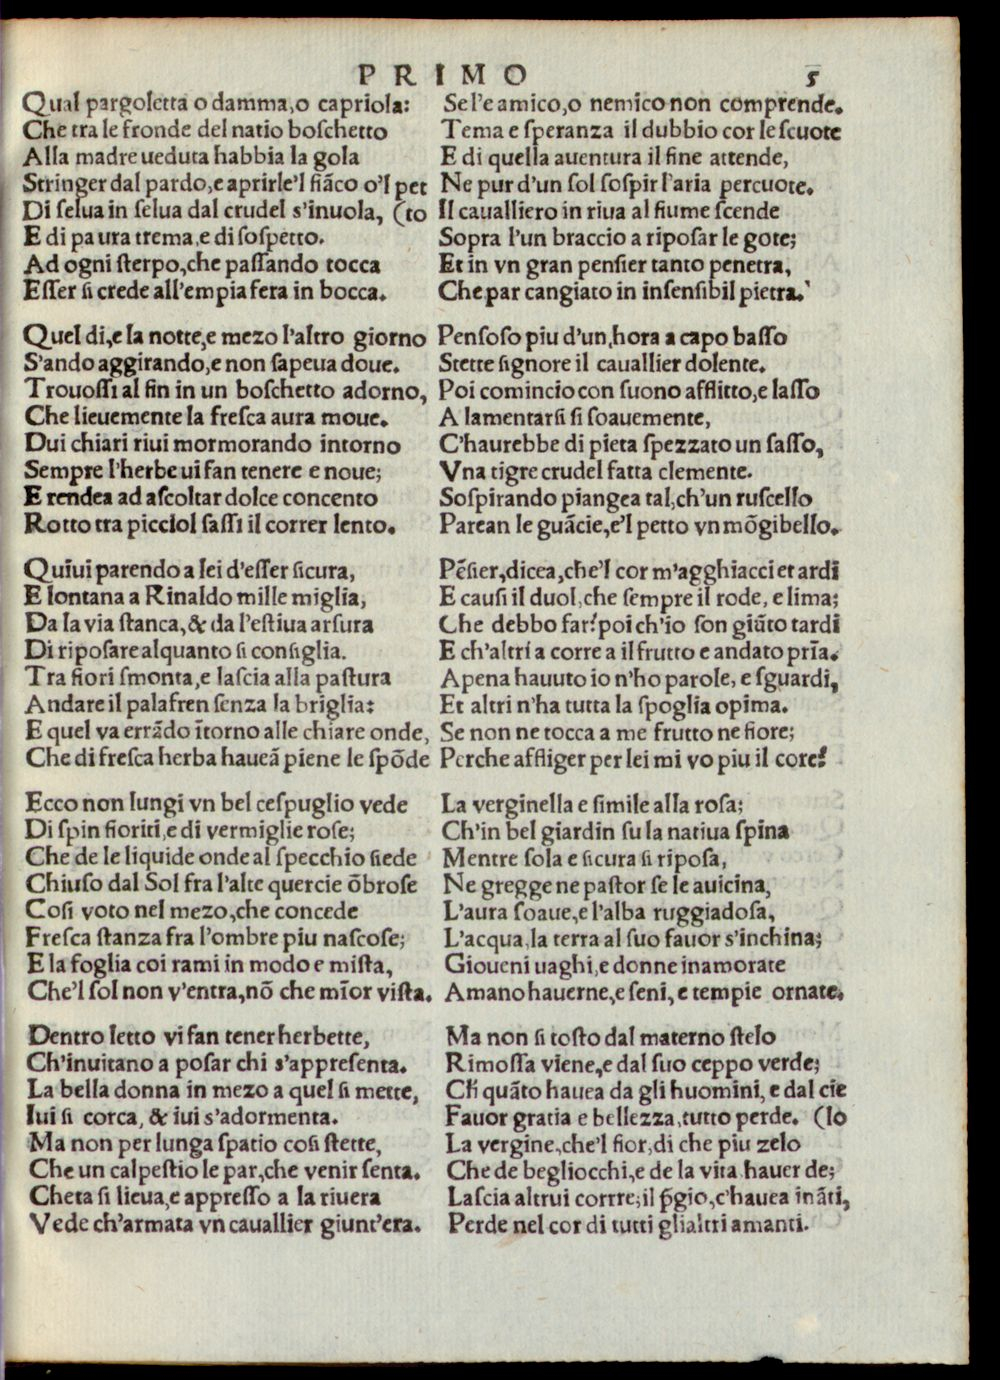 PRIMO 5
Qual pargoletta o damma, o capriola:
Che tra le fronde del natio boſchetto
Alla madre ueduta habbia la gola
Stringer dal pardo, e aprirle'l fiãco o'l pet
Di ſelua in ſelua dal crudel s'inuola, (to
E di paura trema, e di ſoſpetto.
Ad ogni ſterpo, che paſſando tocca
Eſſer ſi crede all'empia fera in bocca.
Quel di, e la notte, e mezo l'altro giorno
S'ando aggirando, e non ſapeua doue.
Trouoſſi al fin in un boſchetto adorno,
Che lieuemente la freſca aura moue.
Dui chiari riui mormorando intorno
Sempre l'herbe ui fan tenere e noue;
E rendea ad aſcoltar dolce concento
Rotto tra picciol ſaſſi il correr lento.
Quiui parendo a lei d'eſſer ſicura,
E lontana a Rinaldo mille miglia,
Da la via ſtanca, & da l'eſtiua arſura
Di ripoſare alquanto ſi conſiglia.
Tra fiori ſmonta, e laſcia alla paſtura
Andare il palafren ſenza la briglia:
E quel va errãdo ĩtorno alle chiare onde,
Che di freſca herba haueã piene le ſpõde
Ecco non lungi vn bel ceſpuglio vede
Di ſpin fioriti, e di vermiglie roſe;
Che de le liquide onde al ſpecchio ſiede
Chiuſo dal Sol fra l'alte quercie õbroſe
Coſi voto nel mezo, che concede
Freſca ſtanza fra l'ombre piu naſcoſe;
E la foglia coi rami in modo e miſta,
Che'l ſol non v'entra, nõ che mĩor viſta.
Dentro letto vi fan tener herbette,
Ch'inuitano a poſar chi s'appreſenta.
La bella donna in mezo a quel ſi mette,
Iui ſi corca, & iui s'adormenta.
Ma non per lunga ſpatio coſi ſtette,
Che un calpeſtio le par, che venir ſenta.
Cheta ſi lieua, e appreſſo a la riuera
Vede ch'armata vn cauallier giunt'era.
Se l'e amico, o nemico non comprende.
Tema e ſperanza il dubbio cor le ſcuote
E di quella auentura il fine attende,
Ne pur d'un ſol ſoſpir l'aria percuote.
Il caualliero in riua al fiume ſcende
Sopra l'un braccio a ripoſar le gote;
Et in vn gran penſier tanto penetra,
Che par cangiato in inſenſibil pietra.
Penſoso piu d'un, hora a capo baſſo
Stette ſignore il cauallier dolente.
Poi comincio con ſuono afflitto, e laſſo
A lamentarſi ſi ſoauemente,
C'haurebbe di pieta ſpezzato un ſaſſo,
Vna tigre crudel fatta clemente.
Soſpirando piangea tal, ch'un ruſcello
Parean le guãcie, e'l petto vn mõgibello.
Pẽſier, dicea, che'l cor m'agghiacci et ardi
E cauſi il duol, che ſempre il rode, e lima;
Che debbo far? poi ch'io ſon giũto tardi
E ch'altri a corre a il frutto e andato prĩa.
Apena hauuto io n'ho parole, e ſguardi,
Et altri n'ha tutta la ſpoglia opima.
Se non ne tocca a me frutto ne fiore;
Perche affliger per lei mi vo piu il core?
La verginella e ſimile alla roſa;
Ch'in bel giardin ſu la natiua ſpina
Mentre ſola e ſicura ſi ripoſa,
Ne gregge ne paſtor ſe le auicina,
L'aura ſoaue, e l'alba ruggiadoſa,
L'acqua, la terra al ſuo fauor s'inchina;
Gioueni uaghi, e donne inamorate
Amano hauerne, e ſeni, e tempie ornate.
Ma non ſi toſto dal materno ſtelo
Rimoſſa viene, e dal ſuo ceppo verde;
Ch̃ quãto hauea da gli huomini, e dal cie
Fauor gratia e bellezza, tutto perde. (lo
La vergine, che'l fior, di che piu zelo
Che de begliocchi, e de la vita hauer de;
Laſcia altrui corrre; il p̃gio, c'hauea inãti,
Perde nel cor di tutti glialtri amanti.